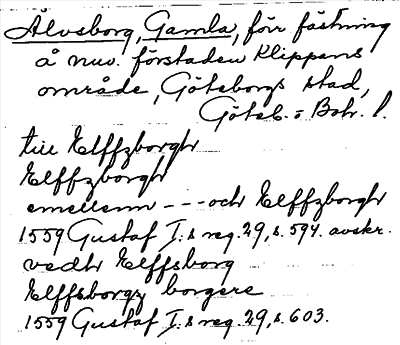 Älvsborg, Gamla, förr fästning
å nuv. förstaden Klippens
område, Göteborgs stad,
Göteb. o Boh. l.
till Elffzborgh
Elffzborgh
emellenn --- och Elffzborgh
1559 Gustaf I:s reg. 29, s. 594. avskr.
vedh Elffsborg
Elffsborgz borgere
1559 Gustaf I:s reg. 29, s. 603.